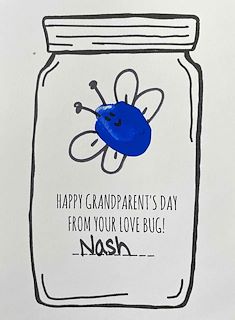 HAPPY GRANDPARENT'S DAY
FROM YOUR LOVE BUG!
Nash